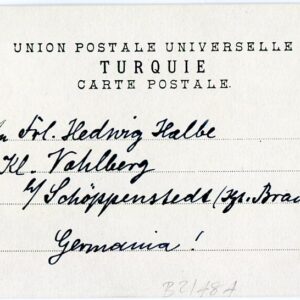 UNION POSTALE UNIVERSELLE
TURQUIE
CARTE POSTALE.
Frl. Hedwig Halbe
Kl. Vahlberg
b/ Schöppenstedt
Germania!
B2148A